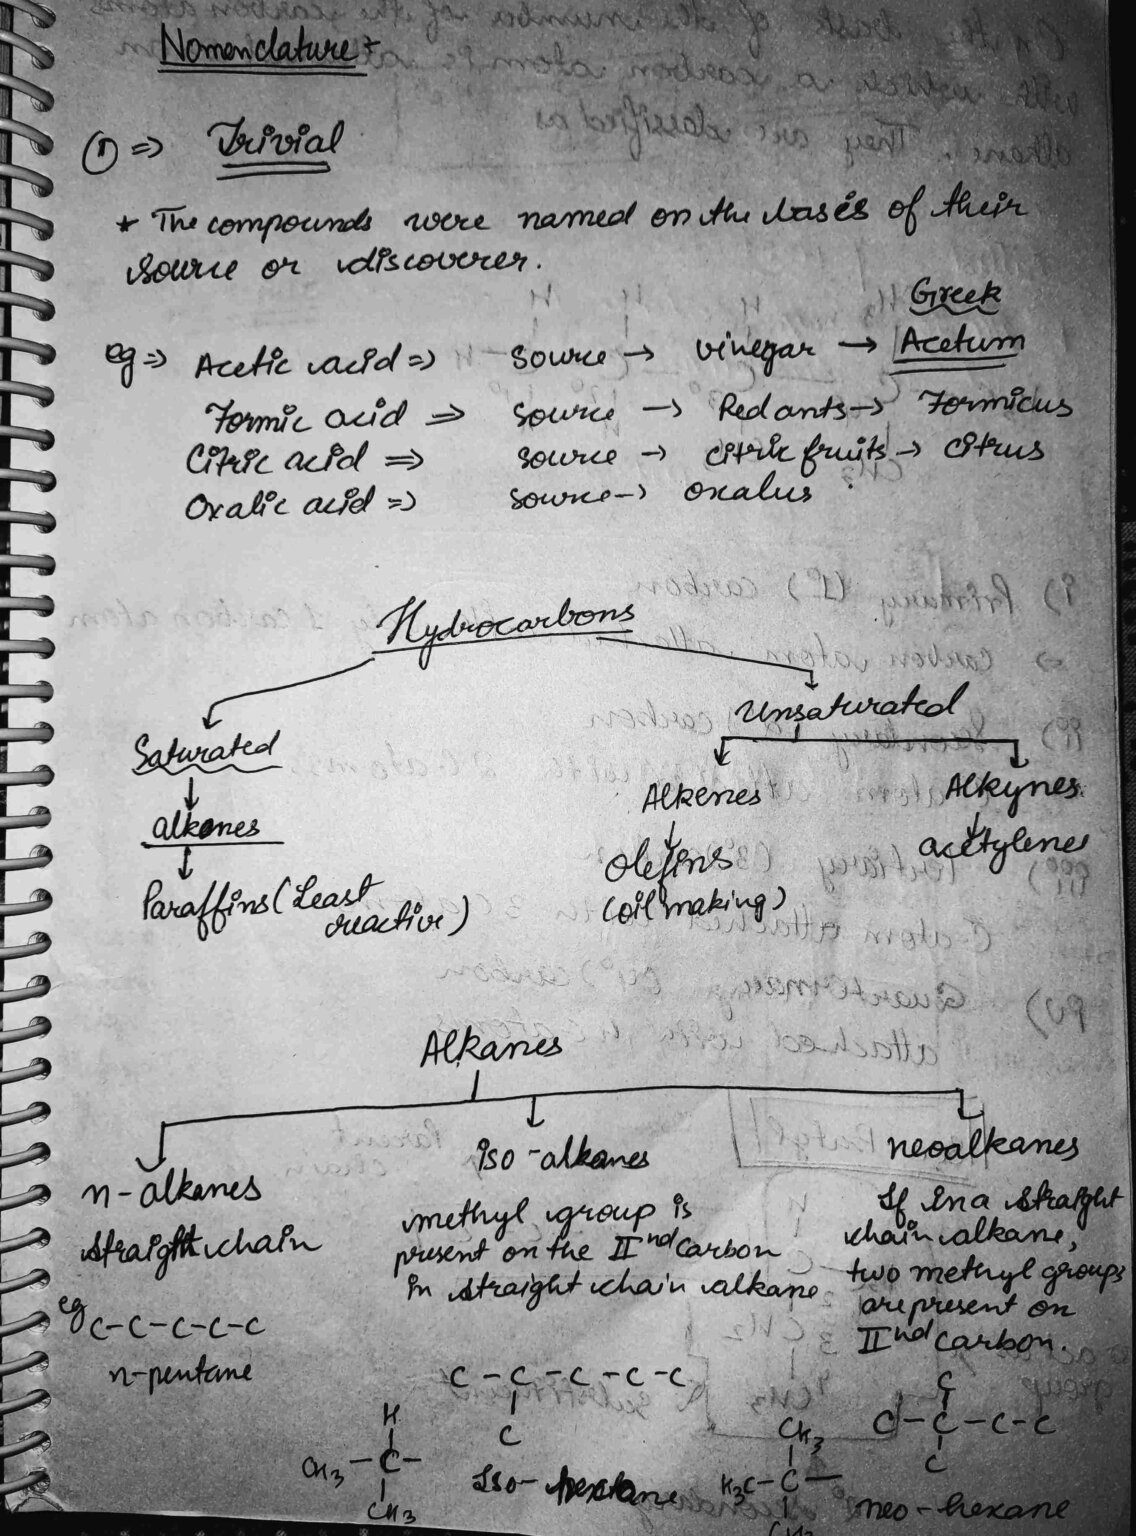 Nomenclature :-
① => Trivial
* The compounds were named on the basis of their
source or discoverer.
Greek
eg => Acetic acid => source → vinegar → Acetum
Formic acid => source → Red ants → Formicus
Citric acid => source → citric fruits → citrus
Oxalic acid => source → oxalus
Hydrocarbons
Saturated Unsaturated
alkanes Alkenes Alkynes
Paraffins (Least reactive) olefins (oil making) acetylenes
Alkanes
n-alkanes iso-alkanes neoalkanes
straight chain
methyl group is
present on the IInd carbon
in straight chain alkane
If in a straight
chain alkane,
two methyl groups
are present on
IInd carbon.
eg C-C-C-C-C
n-pentane
C-C-C-C-C
C
Iso-hexane
H
CH3-C-
CH3
C
C-C-C-C
C
neo-hexane
CH3
H3C-C-
CH3